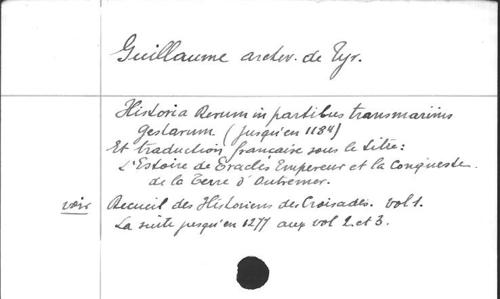 Guillaume archev. de Tyr.
Historia Rerum in partibus transmarinis
gestarum (jusqu'en 1184)
Et traduction française sous le titre:
L'Estoire de Eracles Empereur et la Conqueste
de la Terre d'Outremer.
voir Recueil des Historiens des Croisades. vol 1.
La suite jusqu'en 1277 aux vol 2 et 3.